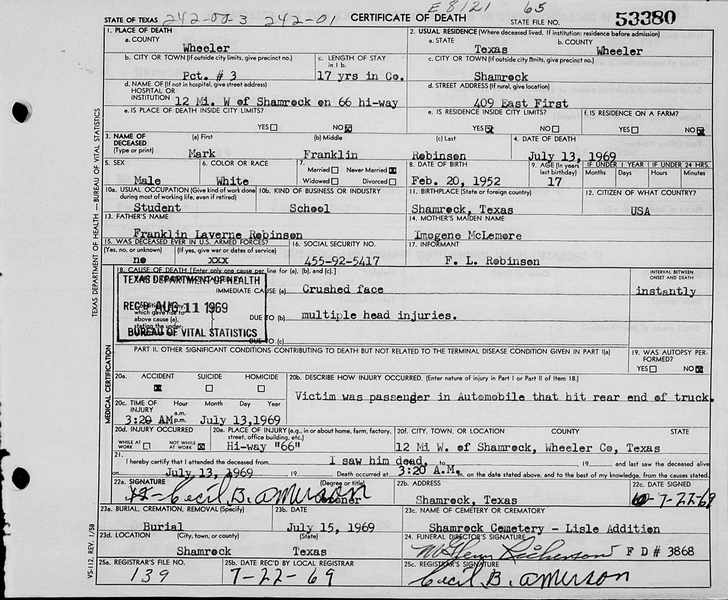 E 8/21 65
STATE OF TEXAS 242-00-3 242-01 CERTIFICATE OF DEATH STATE FILE NO. 53380
1. PLACE OF DEATH
a. COUNTY Wheeler
2. USUAL RESIDENCE (Where deceased lived. If institution: residence before admission)
a. STATE Texas b. COUNTY Wheeler
b. CITY OR TOWN (If outside city limits, give precinct no.) Pct. # 3
c. LENGTH OF STAY in 1 b. 17 yrs in Co.
c. CITY OR TOWN (If outside city limits, give precinct no.) Shamrock
d. NAME OF (If not in hospital, give street address) HOSPITAL OR INSTITUTION 12 Mi. W of Shamrock on 66 hi-way
d. STREET ADDRESS (If rural, give location) 409 East First
e. IS PLACE OF DEATH INSIDE CITY LIMITS? YES NO
e. IS RESIDENCE INSIDE CITY LIMITS? YES NO
f. IS RESIDENCE ON A FARM? YES NO
3. NAME OF DECEASED (Type or print)
(a) First Mark
(b) Middle Franklin
(c) Last Robinson
4. DATE OF DEATH July 13, 1969
5. SEX Male
6. COLOR OR RACE White
7. Married Never Married Widowed Divorced
8. DATE OF BIRTH Feb. 20, 1952
9. AGE (In years last birthday) 17
IF UNDER 1 YEAR Months Days
IF UNDER 24 HRS. Hours Minutes
10a. USUAL OCCUPATION (Give kind of work done during most of working life, even if retired) Student
10b. KIND OF BUSINESS OR INDUSTRY School
11. BIRTHPLACE (State or foreign country) Shamrock, Texas
12. CITIZEN OF WHAT COUNTRY? USA
13. FATHER'S NAME Franklin Laverne Robinson
14. MOTHER'S MAIDEN NAME Imogene McLemore
15. WAS DECEASED EVER IN U.S. ARMED FORCES?
(Yes, no, or unknown) no
(If yes, give war or dates of service) xxx
16. SOCIAL SECURITY NO. 455-92-5417
17. INFORMANT F. L. Robinson
18. CAUSE OF DEATH [Enter only one cause per line for (a), (b), and (c).]
INTERVAL BETWEEN ONSET AND DEATH
TEXAS DEPARTMENT OF HEALTH
REC'D AUG 11 1969
BUREAU OF VITAL STATISTICS
IMMEDIATE CAUSE (a) Crushed face instantly
above cause (a), stating the under-
DUE TO (b) multiple head injuries.
DUE TO (c)
PART II. OTHER SIGNIFICANT CONDITIONS CONTRIBUTING TO DEATH BUT NOT RELATED TO THE TERMINAL DISEASE CONDITION GIVEN IN PART I(a)
19. WAS AUTOPSY PERFORMED? YES NO
20a. ACCIDENT SUICIDE HOMICIDE
20b. DESCRIBE HOW INJURY OCCURRED. (Enter nature of injury in Part I or Part II of Item 18.)
Victim was passenger in Automobile that hit rear end of truck.
20c. TIME OF INJURY Hour Month Day Year
a.m. p.m.
3:20 AM July 13,1969
20d. INJURY OCCURRED WHILE AT WORK NOT WHILE AT WORK
20e. PLACE OF INJURY (e.g., in or about home, farm, factory, street, office building, etc.) Hi-way "66"
20f. CITY, TOWN, OR LOCATION COUNTY STATE
12 Mi W. of Shamrock, Wheeler Co, Texas
21. I hereby certify that I attended the deceased from I saw him dead, 19 and last saw the deceased alive
on July 13, 1969 19 Death occurred at 3:20 A.M. on the date stated above, and to the best of my knowledge, from the causes stated.
22a. SIGNATURE (Degree or title)
Cecil B. Amerson
22b. ADDRESS Shamrock, Texas
22c. DATE SIGNED 7-22-69
23a. BURIAL, CREMATION, REMOVAL (Specify) Burial
23b. DATE July 15, 1969
23c. NAME OF CEMETERY OR CREMATORY Shamrock Cemetery - Lisle Addition
23d. LOCATION (City, town, or county) (State)
Shamrock Texas
24. FUNERAL DIRECTOR'S SIGNATURE
Richerson F D # 3868
25a. REGISTRAR'S FILE NO. 139
25b. DATE REC'D BY LOCAL REGISTRAR 7-22-69
25c. REGISTRAR'S SIGNATURE
Cecil B. Amerson
TEXAS DEPARTMENT OF HEALTH — BUREAU OF VITAL STATISTICS
MEDICAL CERTIFICATION
VS-112, REV. 1/58